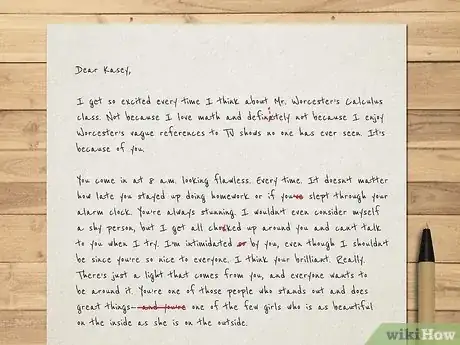 Dear Kasey,
I get so excited every time I think about Mr. Worcester's Calculus
class. Not because I love math and definitely not because I enjoy
Worcester's vague references to TV shows no one has ever seen. It's
because of you.
You come in at 8 a.m. looking flawless. Every time. It doesn't matter
how late you stayed up doing homework or if you're slept through your
alarm clock. You're always stunning. I wouldn't even consider myself
a shy person, but I get all chocked up around you and can't talk
to you when I try. I'm intimidated or by you, even though I shouldn't
be since you're so nice to everyone. I think your brilliant. Really.
There's just a light that comes from you, and everyone wants to
be around it. You're one of those people who stands out and does
great things—and you're one of the few girls who is as beautiful
on the inside as she is on the outside.
wikiHow